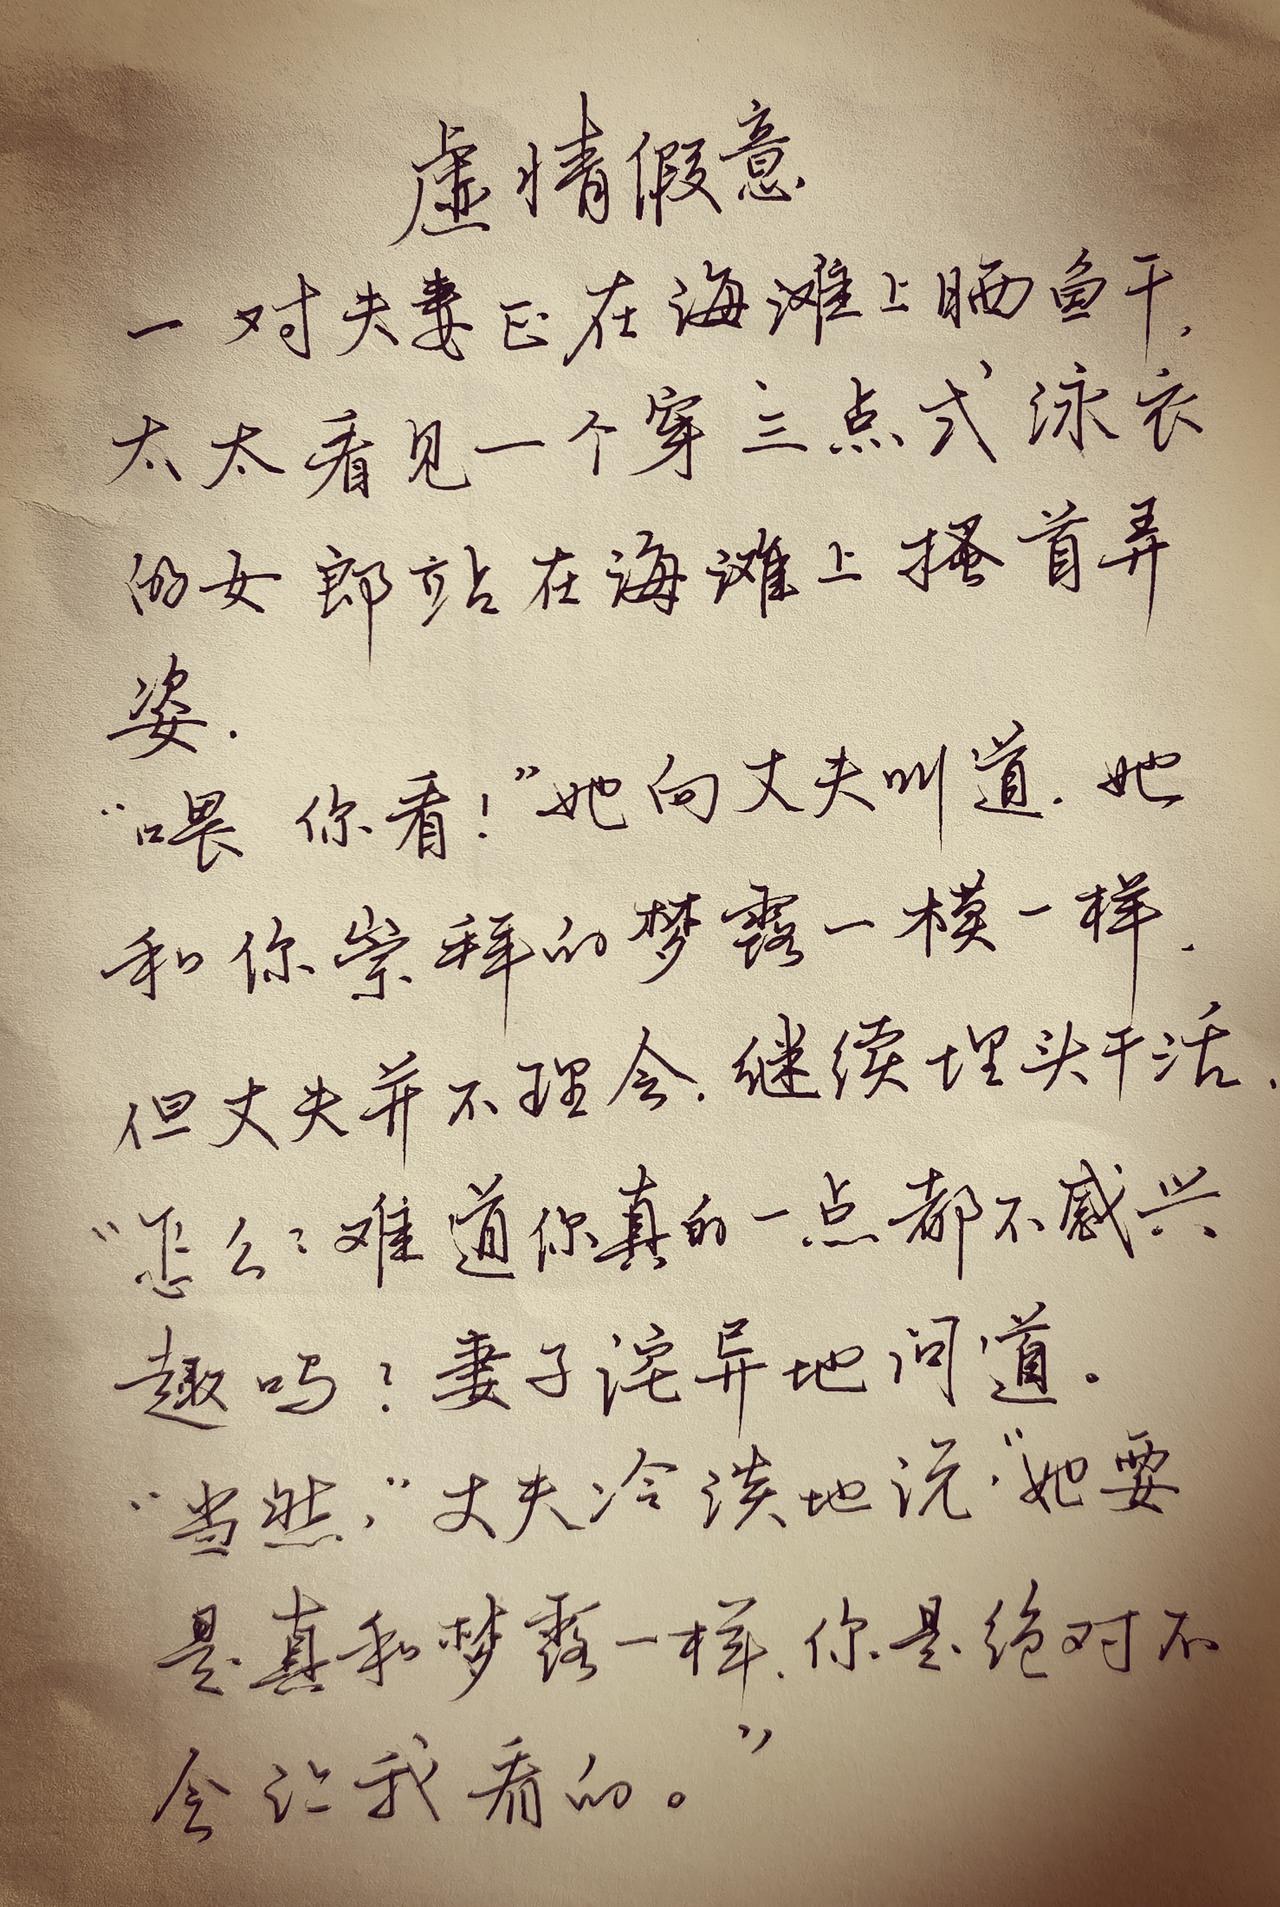 虚情假意
一对夫妻正在海滩上晒鱼干,
太太看见一个穿三点式泳衣
的女郎站在海滩上搔首弄
姿.
“喂 你看!”她向丈夫叫道.她
和你崇拜的梦露一模一样.
但丈夫并不理会.继续埋头干活.
“怎么?难道你真的一点都不感兴
趣吗?妻子诧异地问道.
“当然,”丈夫冷淡地说,“她要
是真和梦露一样.你是绝对不
会让我看的。”